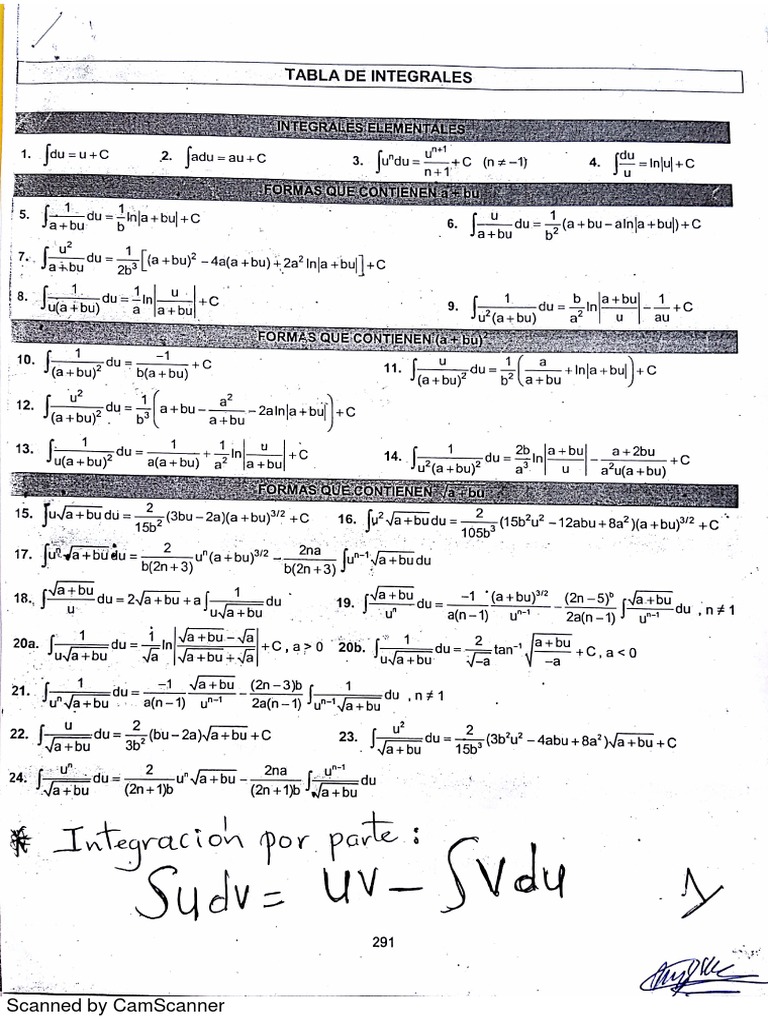 TABLA DE INTEGRALES
INTEGRALES ELEMENTALES
1. ∫du = u + C 2. ∫adu = au + C 3. ∫uⁿdu = uⁿ⁺¹/(n + 1) + C (n ≠ −1) 4. ∫du/u = ln|u| + C
FORMAS QUE CONTIENEN a + bu
5. ∫1/(a + bu) du = (1/b) ln|a + bu| + C 6. ∫u/(a + bu) du = (1/b²)(a + bu − aln|a + bu|) + C
7. ∫u²/(a + bu) du = (1/2b³)[(a + bu)² − 4a(a + bu) + 2a² ln|a + bu|] + C
8. ∫1/(u(a + bu)) du = (1/a) ln|u/(a + bu)| + C 9. ∫1/(u²(a + bu)) du = (b/a²) ln|(a + bu)/u| − 1/(au) + C
FORMAS QUE CONTIENEN (a + bu)²
10. ∫1/(a + bu)² du = −1/(b(a + bu)) + C 11. ∫u/(a + bu)² du = (1/b²)(a/(a + bu) + ln|a + bu|) + C
12. ∫u²/(a + bu)² du = (1/b³)(a + bu − a²/(a + bu) − 2aln|a + bu|) + C
13. ∫1/(u(a + bu)²) du = 1/(a(a + bu)) + (1/a²) ln|u/(a + bu)| + C 14. ∫1/(u²(a + bu)²) du = (2b/a³) ln|(a + bu)/u| − (a + 2bu)/(a²u(a + bu)) + C
FORMAS QUE CONTIENEN √a + bu
15. ∫u√(a + bu) du = (2/15b²)(3bu − 2a)(a + bu)^(3/2) + C 16. ∫u²√(a + bu) du = (2/105b³)(15b²u² − 12abu + 8a²)(a + bu)^(3/2) + C
17. ∫uⁿ√(a + bu) du = (2/(b(2n + 3))) uⁿ(a + bu)^(3/2) − (2na/(b(2n + 3))) ∫uⁿ⁻¹√(a + bu) du
18. ∫√(a + bu)/u du = 2√(a + bu) + a∫1/(u√(a + bu)) du 19. ∫√(a + bu)/uⁿ du = (−1/(a(n − 1))) (a + bu)^(3/2)/uⁿ⁻¹ − ((2n − 5)ᵇ/(2a(n − 1))) ∫√(a + bu)/uⁿ⁻¹ du , n ≠ 1
20a. ∫1/(u√(a + bu)) du = (1/√a) ln|(√(a + bu) − √a)/(√(a + bu) + √a)| + C , a > 0 20b. ∫1/(u√(a + bu)) du = (2/√−a) tan⁻¹ √((a + bu)/−a) + C , a < 0
21. ∫1/(uⁿ√(a + bu)) du = (−1/(a(n − 1))) √(a + bu)/uⁿ⁻¹ − ((2n − 3)b/(2a(n − 1))) ∫1/(uⁿ⁻¹√(a + bu)) du , n ≠ 1
22. ∫u/√(a + bu) du = (2/3b²)(bu − 2a)√(a + bu) + C 23. ∫u²/√(a + bu) du = (2/15b³)(3b²u² − 4abu + 8a²)√(a + bu) + C
24. ∫uⁿ/√(a + bu) du = (2/((2n + 1)b)) uⁿ√(a + bu) − (2na/((2n + 1)b)) ∫uⁿ⁻¹/√(a + bu) du
* Integración por parte:
∫udv = uv − ∫vdu 1
291
Scanned by CamScanner